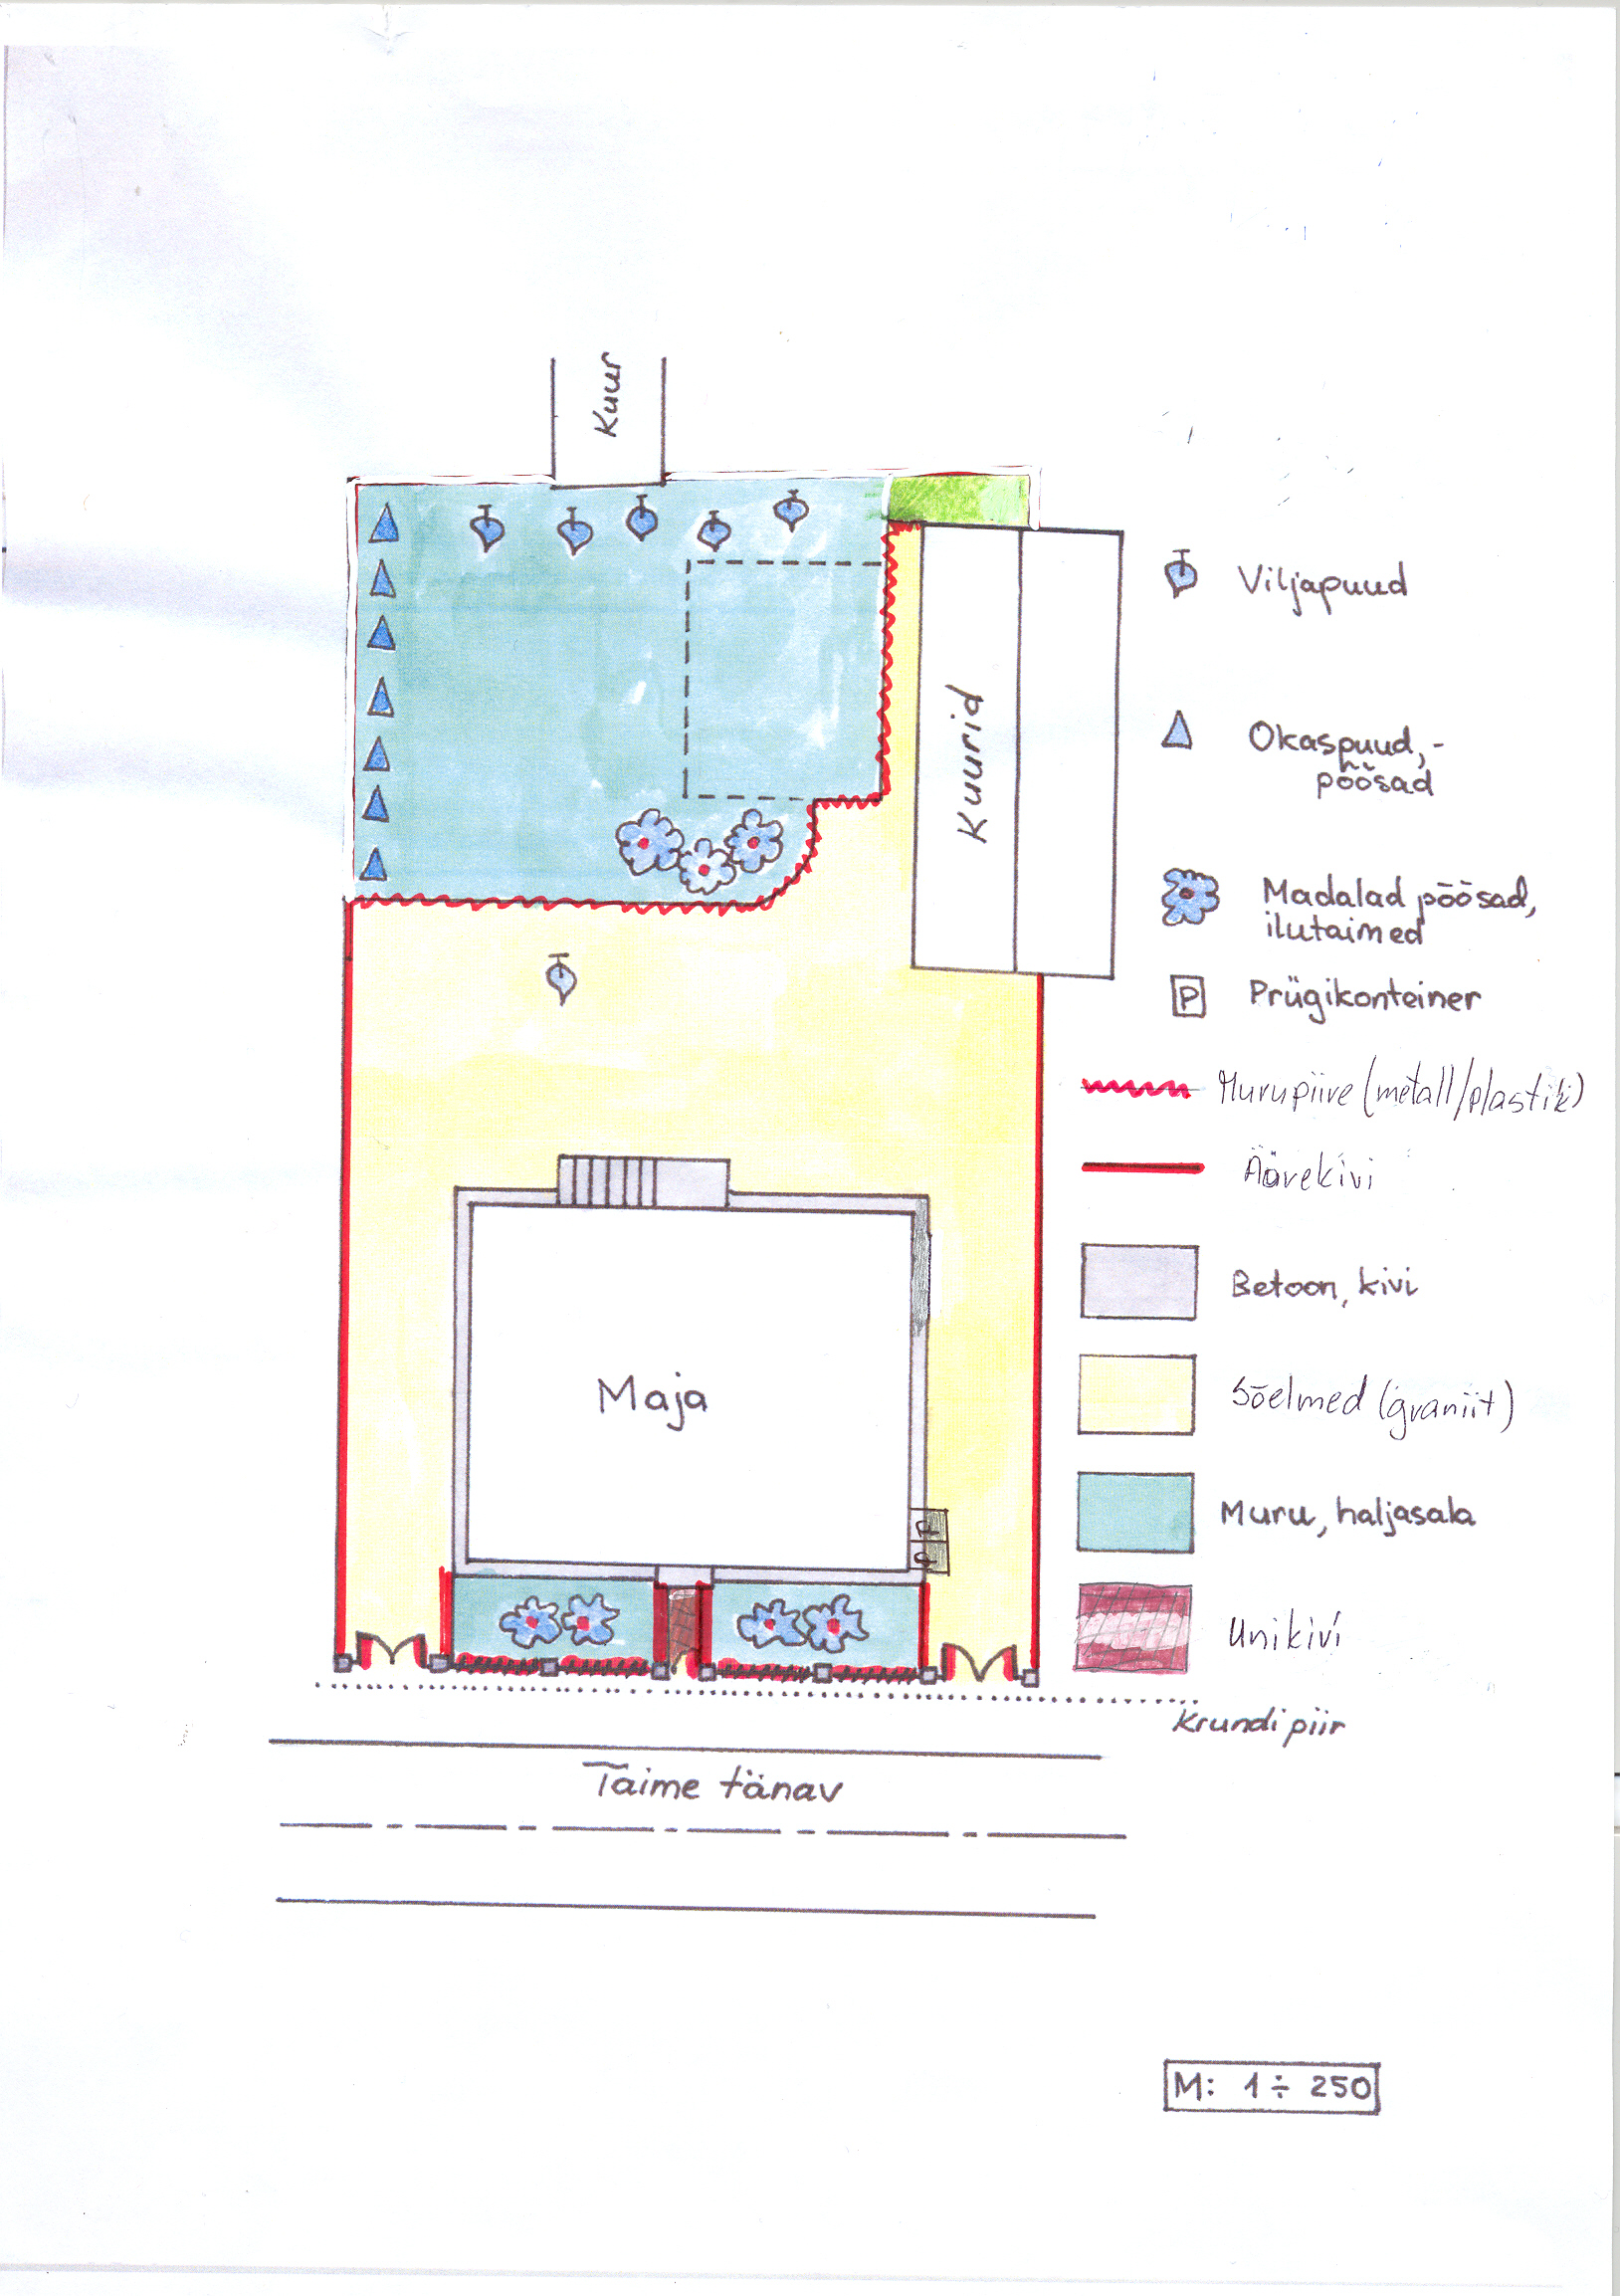 Kuur
Kuurid
Maja
P
P
Viljapuud
Okaspuud,-
põõsad
Madalad põõsad,
ilutaimed
P Prügikonteiner
Murupiire (metall/plastik)
Äärekivi
Betoon, kivi
Sõelmed (graniit)
Muru, haljasala
Unikivi
Krundi piir
Taime tänav
M: 1÷250